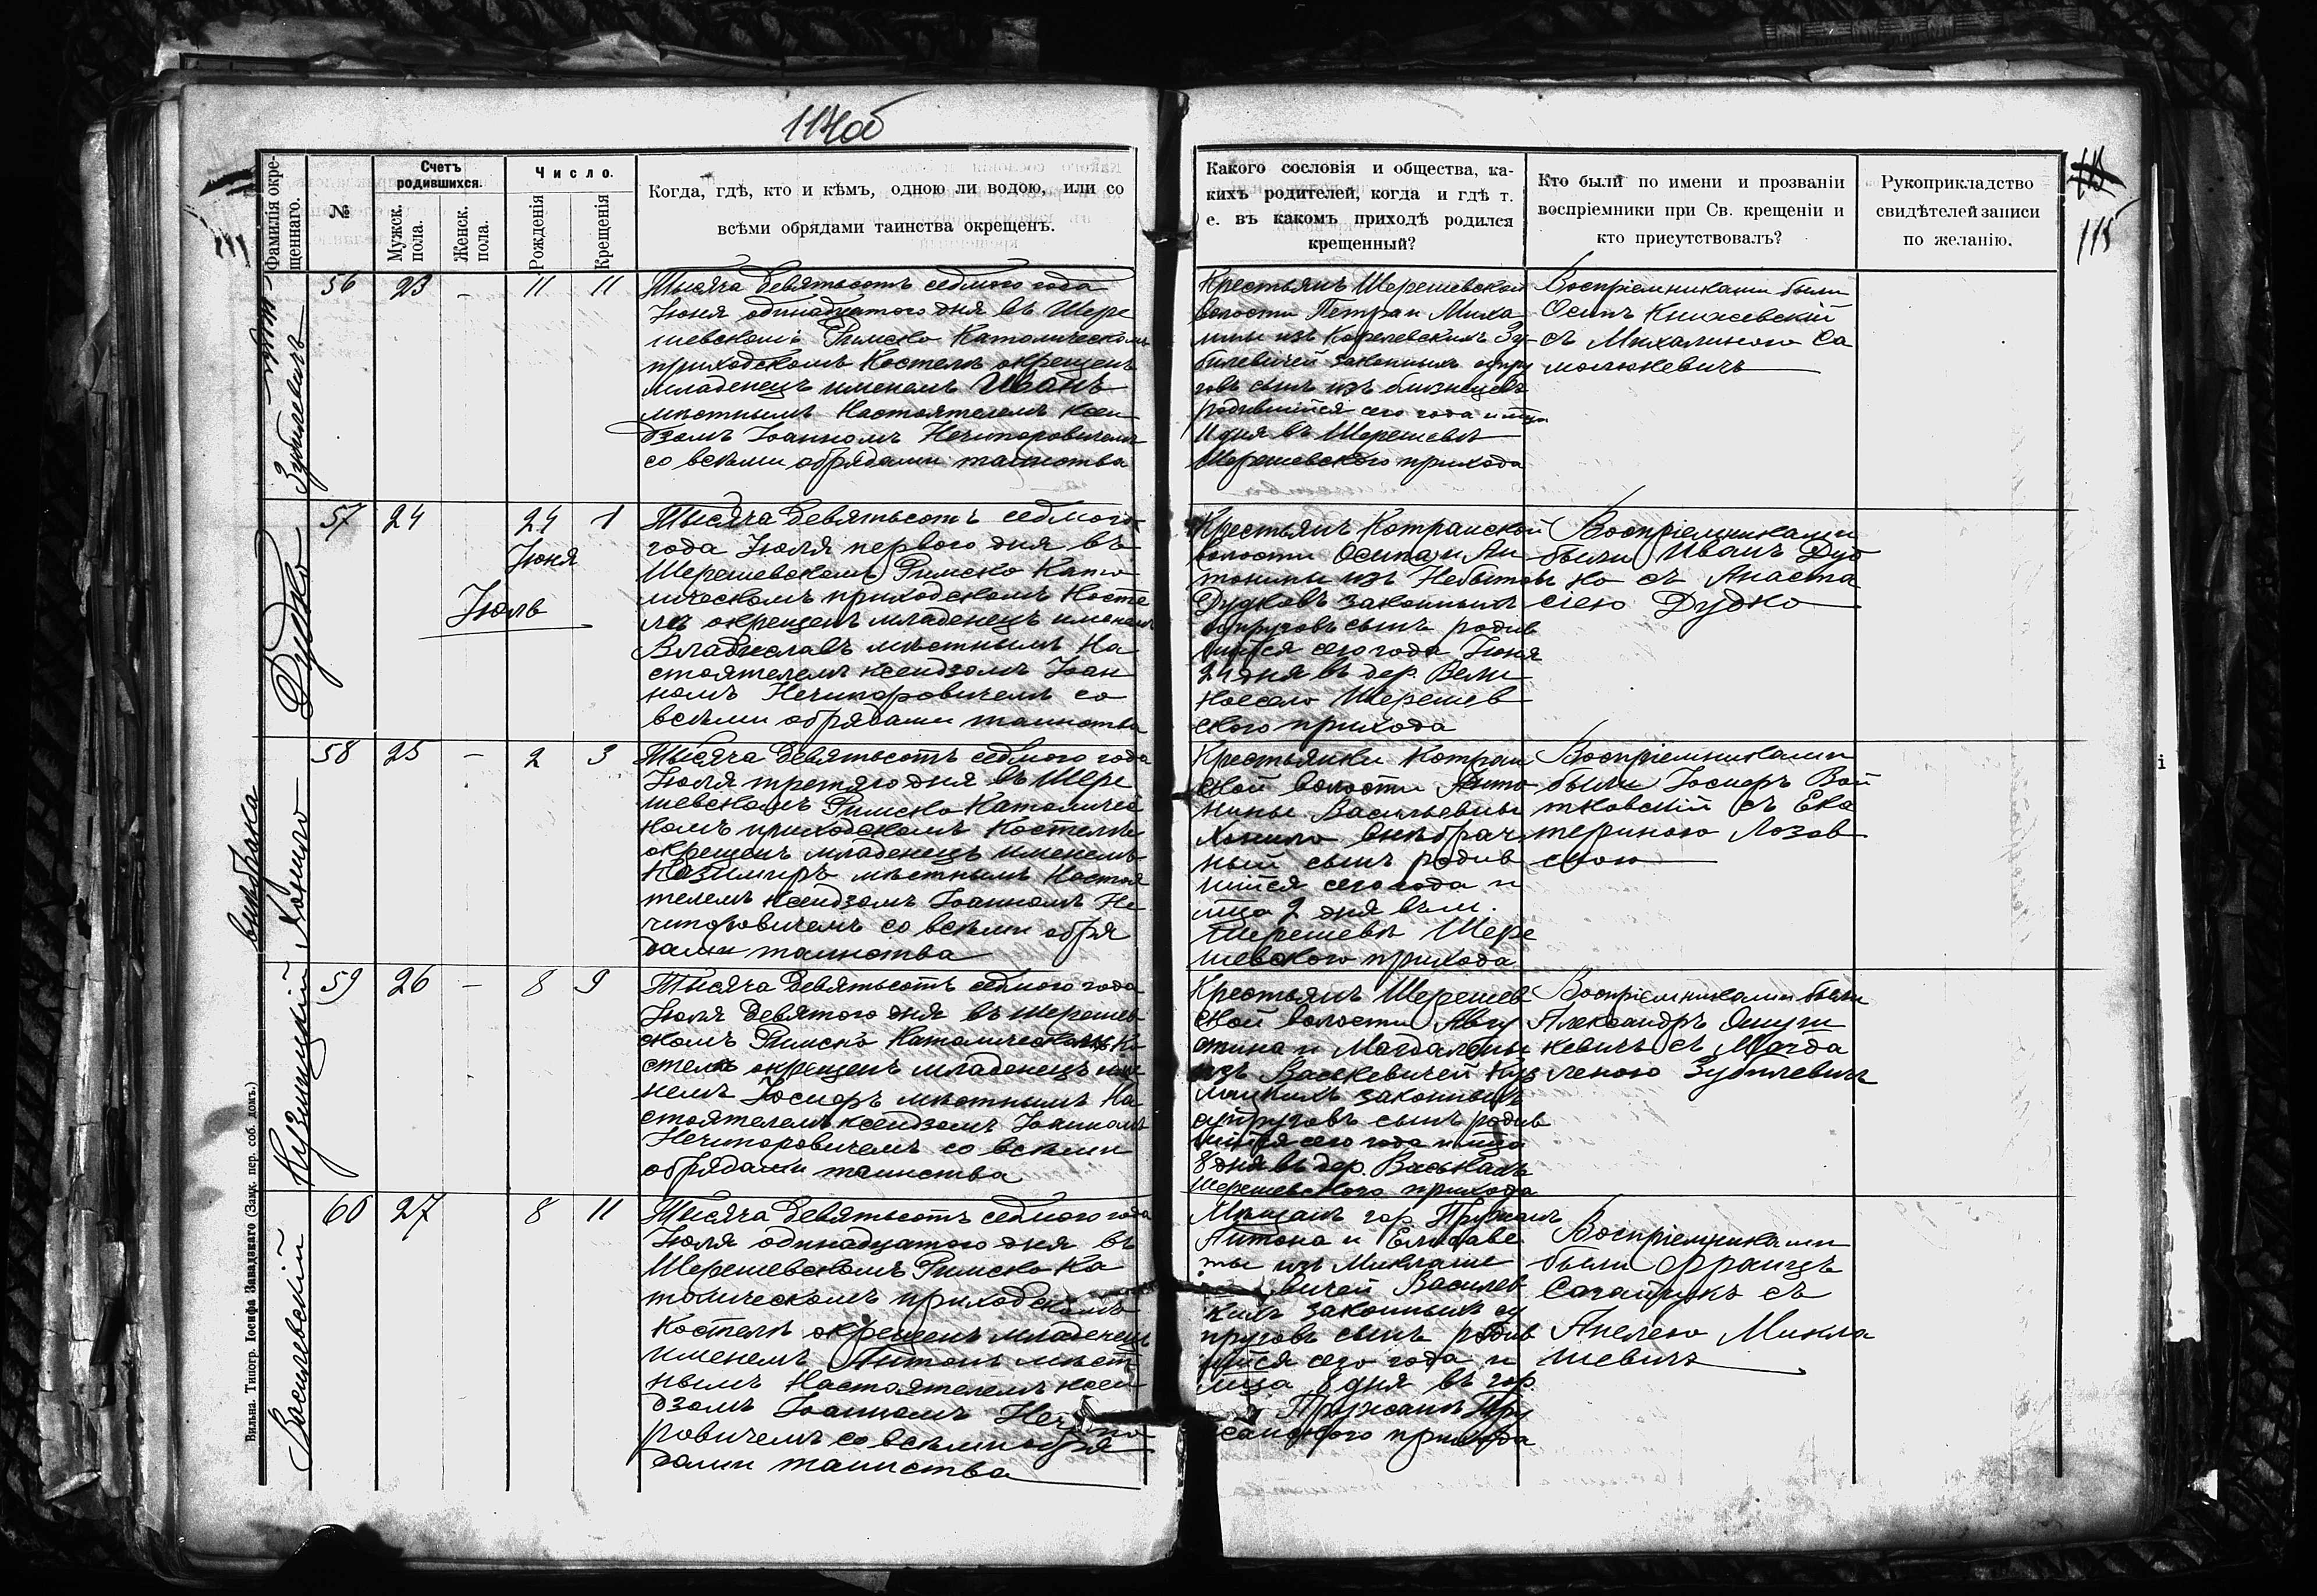 114об
Фамилія окре-
щеннаго.
№
Счетъ
родившихся.
Мужск.
пола.
Женск.
пола.
Число.
Рожденія
Крещенія
Когда, гдѣ, кто и кѣмъ, одною ли водою, или со
всѣми обрядами таинства окрещенъ.
Какого сословія и общества, ка-
кихъ родителей, когда и гдѣ т.
е. въ какомъ приходѣ родился
крещенный?
Кто были по имени и прозваніи
воспріемники при Св. крещеніи и
кто присутствовалъ?
Рукоприкладство
свидѣтелей записи
по желанію.
115
Зубилевичъ
56 23 – 11 11
Тысяча девятьсотъ седмого года
Іюня одинадцатого дня въ Шере
шевскомъ Римско Католическомъ
приходскомъ Костелѣ окрещенъ
младенецъ именемъ Иванъ
мѣстнымъ Настоятелемъ ксен
дзомъ Іоанномъ Нечипоровичемъ
со всѣми обрядами таинства
Крестьянъ Шерешевской
волости Петра и Миха
лины изъ Королевскихъ Зу-
билевичей законныхъ супру
говъ сынъ изъ близнецовъ
родившійся сего года и мца
11 дня въ Шерешевѣ
Шерешевского прихода
Воспріемниками были
Осипъ Княжевскій
съ Михалиною Са
молюкевичъ
Дудко
57 24 24 1
Іюня
Іюль
Тысяча девятьсотъ седмого
года Іюля первого дня въ
Шерешевскомъ Римско Като
лическомъ приходскомъ Косте
лѣ окрещенъ младенецъ именемъ
Владиславъ мѣстнымъ На
стоятелемъ ксендзомъ Іоан
номъ Нечипоровичемъ со
всѣми обрядами таинства
Крестьянъ Котранской
волости Осипа и Ан
тонины изъ Небытовъ
Дудковъ законныхъ
супруговъ сынъ родив
шійся сего года Іюня
24 дня въ дер. Вели
коесело Шерешев
ского прихода
Воспріемниками
были Иванъ Дуд
ко съ Анаста
сіею Дудко
внѣбрака
Хомичо
58 25 – 2 3
Тысяча девятьсотъ седмого года
Іюля третяго дня въ Шере
шевскомъ Римско Католичес
комъ приходскомъ Костелѣ
окрещенъ младенецъ именемъ
Казимиръ мѣстнымъ Настоя
телемъ ксендзомъ Іоанномъ Не
чипоровичемъ со всѣми обря
дами таинства
Крестьянки Котран
ской волости Анто
нины Васильевны
внѣбрач
ный сынъ родив
шійся сего года и
мца 2 дня въ м.
Шерешевѣ Шере
шевского прихода
Воспріемниками
были Іосифъ Вой
тковскій съ Ека
териною Лозов
скою
Кузмицкій
59 26 – 8 9
Тысяча девятьсотъ седмого года
Іюля девятого дня въ Шерешев
скомъ Римско Католическомъ Ко
стелѣ окрещенъ младенецъ име
немъ Іосифъ мѣстнымъ На
стоятелемъ ксендзомъ Іоанномъ
Нечипоровичемъ со всѣми
обрядами таинства
Крестьянъ Шерешев
ской волости Авгу
стина и Магдалены
изъ Васкевичей Куз
мицкихъ законныхъ
супруговъ сынъ родив
шійся сего года и мца
8 дня въ дер. Васькахъ
Шерешевского прихода
Воспріемниками были
Александръ
кевичъ съ Магда
леною Зубилевичъ
Василевскій
60 27 8 11
Тысяча девятьсотъ седмого года
Іюля одинадцатого дня въ
Шерешевскомъ Римско Ка
толическомъ приходскомъ
Костелѣ окрещенъ младенецъ
именемъ Антонъ мѣст
нымъ Настоятелемъ ксен
дзомъ Іоанномъ Нечипо
ровичемъ со всѣми обря
дами таинства
Мѣщанъ гор Пружанъ
Антона и Елисаве
ты изъ Миклаше
вичей Василев
кихъ законныхъ су
пруговъ сынъ родив
шійся сего года и
мца 8 дня въ гор.
Пружанѣ Пру
жанского прихода
Воспріемниками
были Францъ
Сагайдукъ съ
Анелею Микла
шевичъ
Вильна. Типогр. Іосифа Завадзкаго (Замк. пер. соб. домъ.)